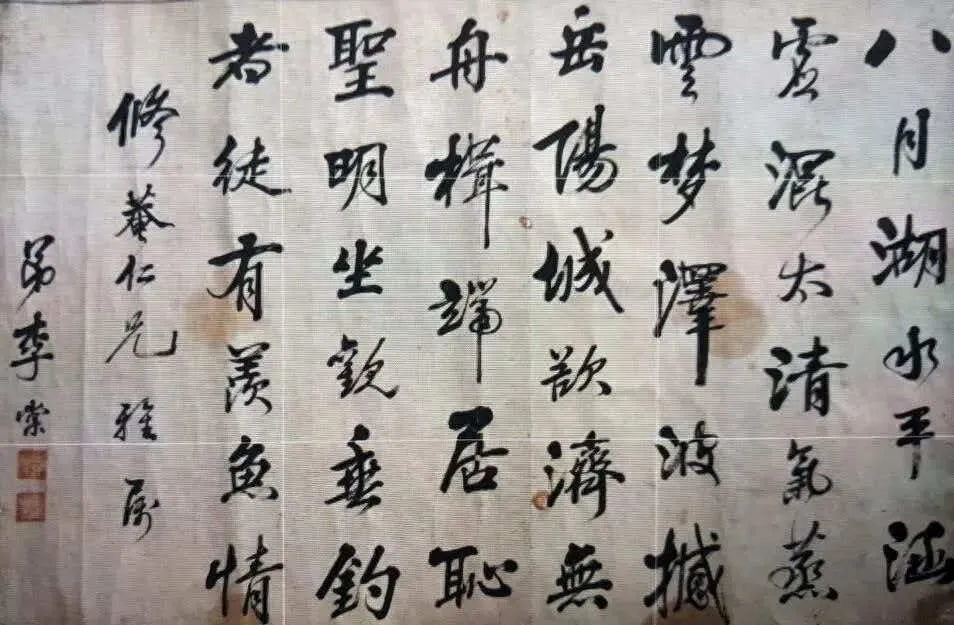 八月湖水平涵
虚混太清氣蒸
雲梦澤波撼
岳陽城欲濟無
舟楫端居恥
聖明坐觀垂釣
者徒有羨魚情
修菴仁兄雅属
弟李